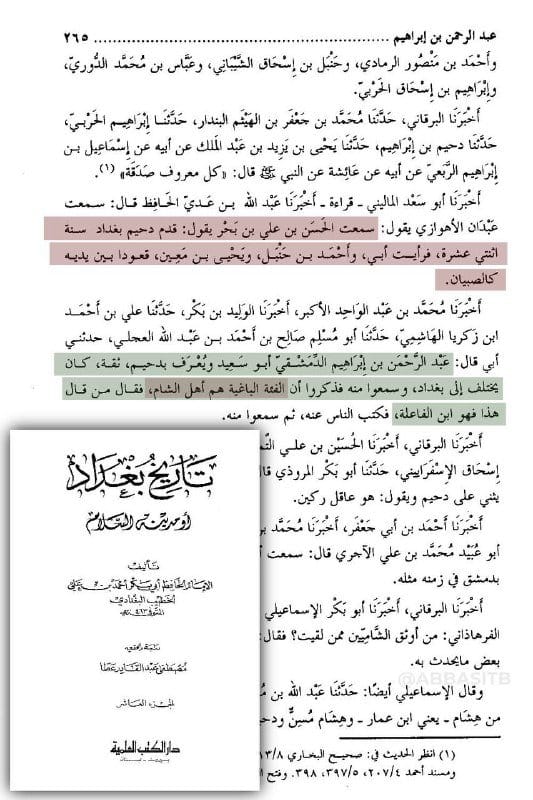 عبد الرحمن بن إبراهيم ........................................ ٢٦٥
وأَحْمَد بن مَنْصُور الرمادي، وحَنْبَل بن إِسْحَاق الشَّيْبَاني، وعَبَّاس بن مُحَمَّد الدُّوريّ،
وإِبْرَاهِيم بن إِسْحَاق الحَرْبيّ.
أَخْبَرَنَا البرقاني، حَدَّثَنَا مُحَمَّد بن جَعْفَر بن الهَيْثَم البندار، حَدَّثَنَا إِبْرَاهِيم الحَرْبيّ،
حَدَّثَنَا دحيم بن إِبْرَاهِيم، حَدَّثَنَا يَحْيَى بن يَزِيد بن عَبْد المَلك عن أبيه عن إِسْمَاعِيل بن
إِبْرَاهِيم الرَّبَعيّ عن أبيه عن عَائِشَة عن النبي ﷺ قال: «كل معروف صَدَقَة» (١).
أَخْبَرَنَا أبو سَعْد الماليني - قراءة - أَخْبَرَنَا عَبْد الله بن عَديّ الحَافِظ قال: سمعت
عَبْدَان الأهوازي يقول: سمعت الحَسَن بن علي بن بَحْر يقول: قدم دحيم بغداد سنة
اثنتي عشرة، فرأيت أبي، وأَحْمَد بن حَنْبَل، ويَحْيَى بن مَعِين، قعودا بين يديه
كالصبيان.
أَخْبَرَنَا مُحَمَّد بن عَبْد الواحد الأكبر، أَخْبَرَنَا الوليد بن بَكْر، حَدَّثَنَا علي بن أَحْمَد
ابن زكريا الهَاشِميّ، حَدَّثَنَا أبو مُسْلِم صَالِح بن أَحْمَد بن عَبْد الله العجلي، حدثني
أبي قال: عَبْد الرَّحْمَن بن إِبْرَاهِيم الدِّمَشْقيّ أبو سَعِيد ويُعْرَف بدحيم، ثقة، كان
يختلف إلى بغداد، وسمعوا منه فذكروا أن الفئة الباغية هم أهل الشام، فقال من قال
هذا فهو ابن الفاعلة، فكتب الناس عنه، ثم سمعوا منه.
أَخْبَرَنَا البرقاني، أَخْبَرَنَا الحُسَيْن بن علي
إِسْحَاق الإِسْفَراييني، حَدَّثَنَا أبو بَكْر المروذي قال
يثني على دحيم ويقول: هو عاقل ركين.
أَخْبَرَنَا أَحْمَد بن أبي جَعْفَر، أَخْبَرَنَا مُحَمَّد
أبو عُبَيْد مُحَمَّد بن علي الآجري قال: سمعت
بدمشق في زمنه مثله.
أَخْبَرَنَا البرقاني، أَخْبَرَنَا أبو بَكْر الإسماعيلي
الفرهاذاني: من أوثق الشَّاميّين ممن لقيت؟ فقال:
بعض مايحدث به.
وقال الإسماعيلي أيضًا: حَدَّثَنَا عَبْد الله بن
من هِشَام - يعني ابن عمار - وهِشَام مُسِنٌّ ودحيم
(١) انظر الحديث في: صحيح البخاري ١٣/٨
ومسند أحمد ٢٠٧/٤، ٣٩٧/٥، ٣٩٨. وفتح
تاريخ بغداد
أو مدينة السلام
تأليف
الإمام الحافظ أبي بكر أحمد بن علي
الخطيب البغدادي
المتوفى ٤٦٣ هـ
دراسة وتحقيق
مصطفى عبد القادر عطا
الجزء العاشر
دار الكتب العلمية
بيروت - لبنان
@ABBASITB